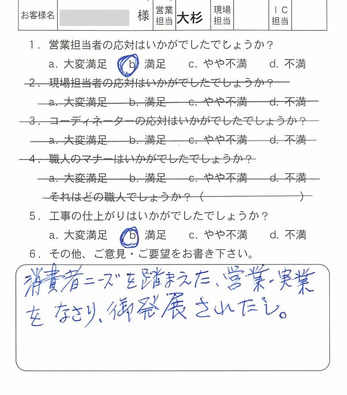 お客様名 様 営業担当 大杉 現場担当 IC担当
1. 営業担当者の応対はいかがでしたでしょうか?
a. 大変満足 b. 満足 c. やや不満 d. 不満
2. 現場担当者の応対はいかがでしたでしょうか?
a. 大変満足 b. 満足 c. やや不満 d. 不満
3. コーディネーターの応対はいかがでしたでしょうか?
a. 大変満足 b. 満足 c. やや不満 d. 不満
4. 職人のマナーはいかがでしたでしょうか?
a. 大変満足 b. 満足 c. やや不満 d. 不満
それはどの職人でしょうか? ( )
5. 工事の仕上がりはいかがでしたでしょうか?
a. 大変満足 b. 満足 c. やや不満 d. 不満
6. その他、ご意見・ご要望をお書き下さい。
消費者ニーズを踏まえた、営業・実業
をなさり、御発展されたし。